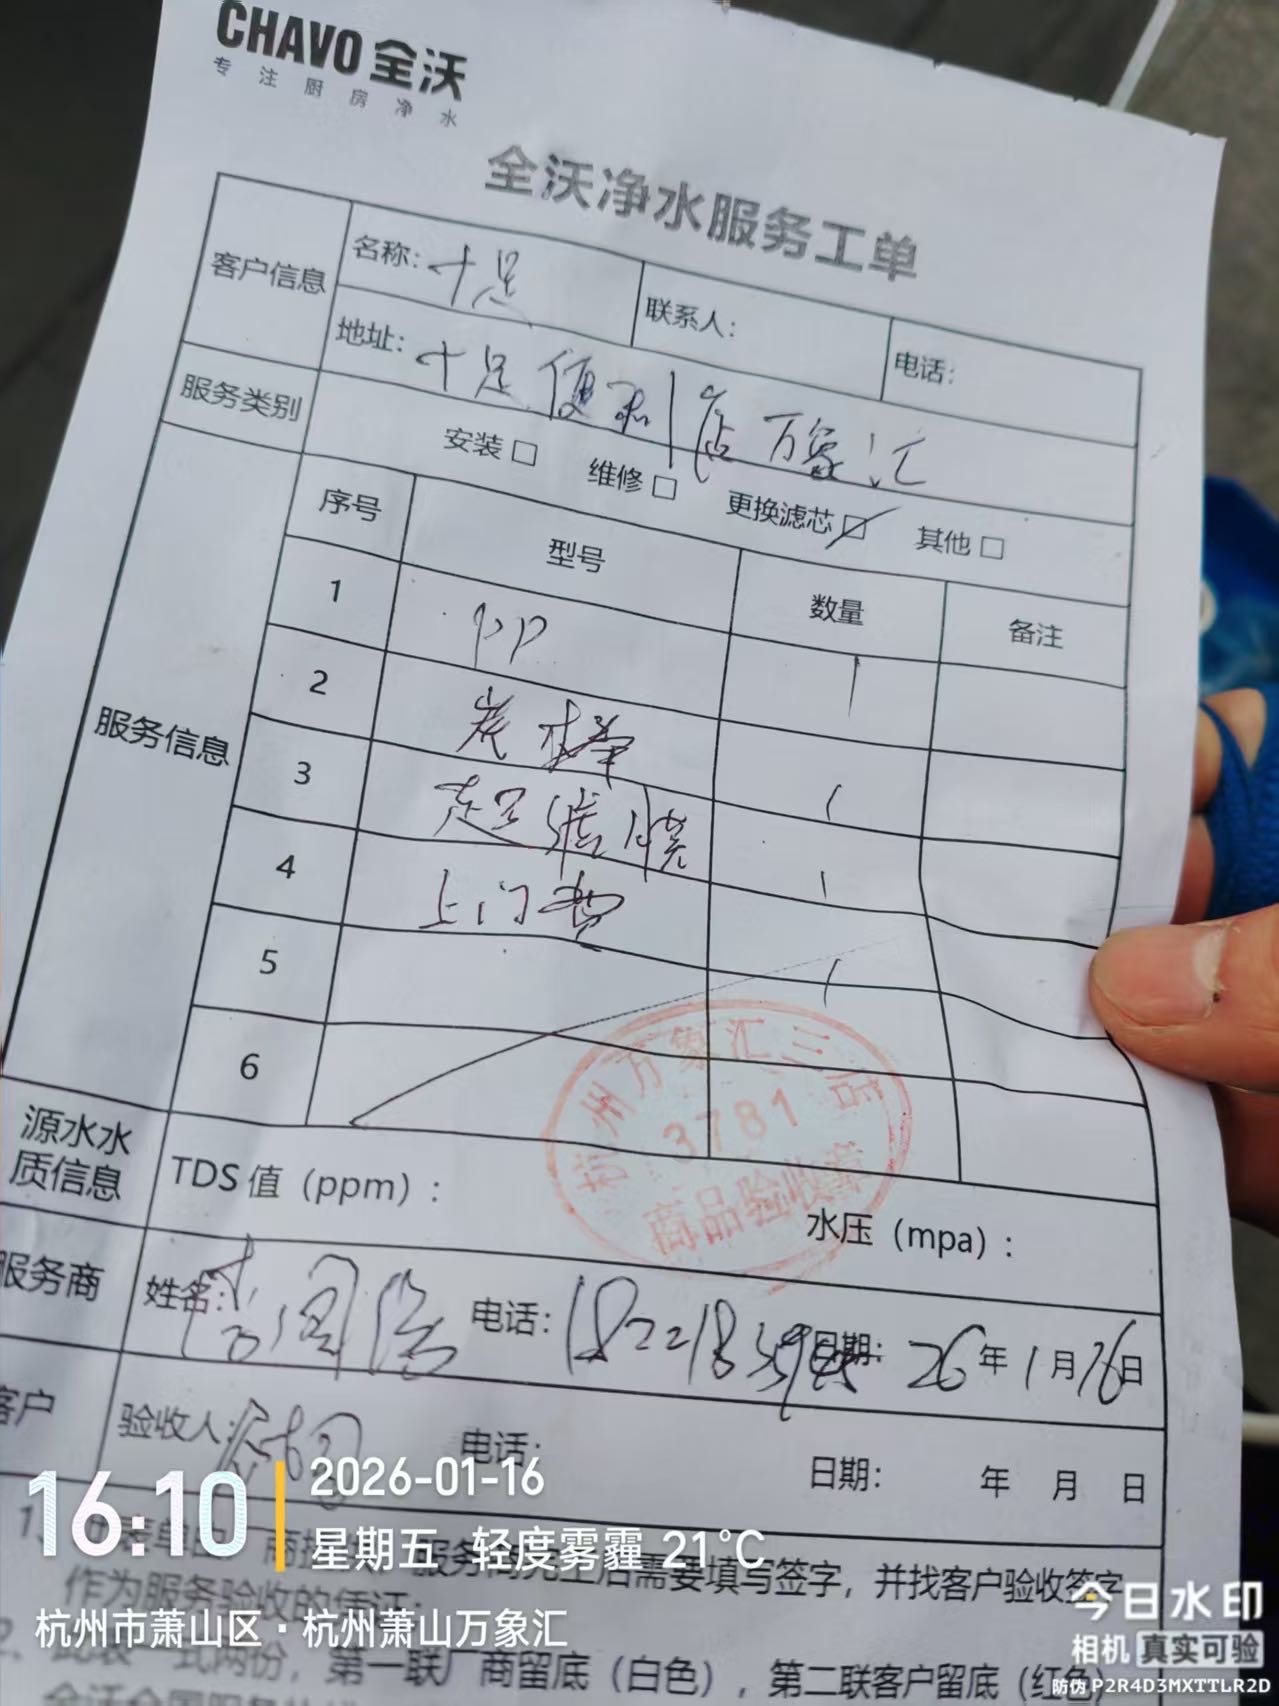 CHAVO 全沃
专注厨房净水
全沃净水服务工单
客户信息
名称: 十足
联系人:
电话:
地址: 十足便利店万象汇
服务类别
安装□ 维修□ 更换滤芯☑ 其他□
服务信息
序号 型号 数量 备注
1 PP 1
2 炭棒 1
3 超滤 1
4 上门费 1
5
6
杭州万象汇三店
3781
商品验收章
源水水质信息
TDS 值（ppm）:
水压（mpa）:
服务商
姓名:
电话: 182218
日期: 26年1月16日
客户
验收人:
电话:
日期: 年 月 日
服务商完工后需要填写签字，并找客户验收签字
作为服务验收的凭证;
2、此表一式两份，第一联厂商留底（白色），第二联客户留底（红色）
16:10
2026-01-16
星期五 轻度雾霾 21°C
杭州市萧山区·杭州萧山万象汇
今日水印
相机 真实可验
防伪 P2R4D3MXTTLR2D